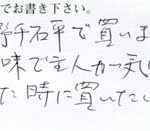 でお書き下さい。
野千石平で買いま
味で主人が気に
た時に買いたい